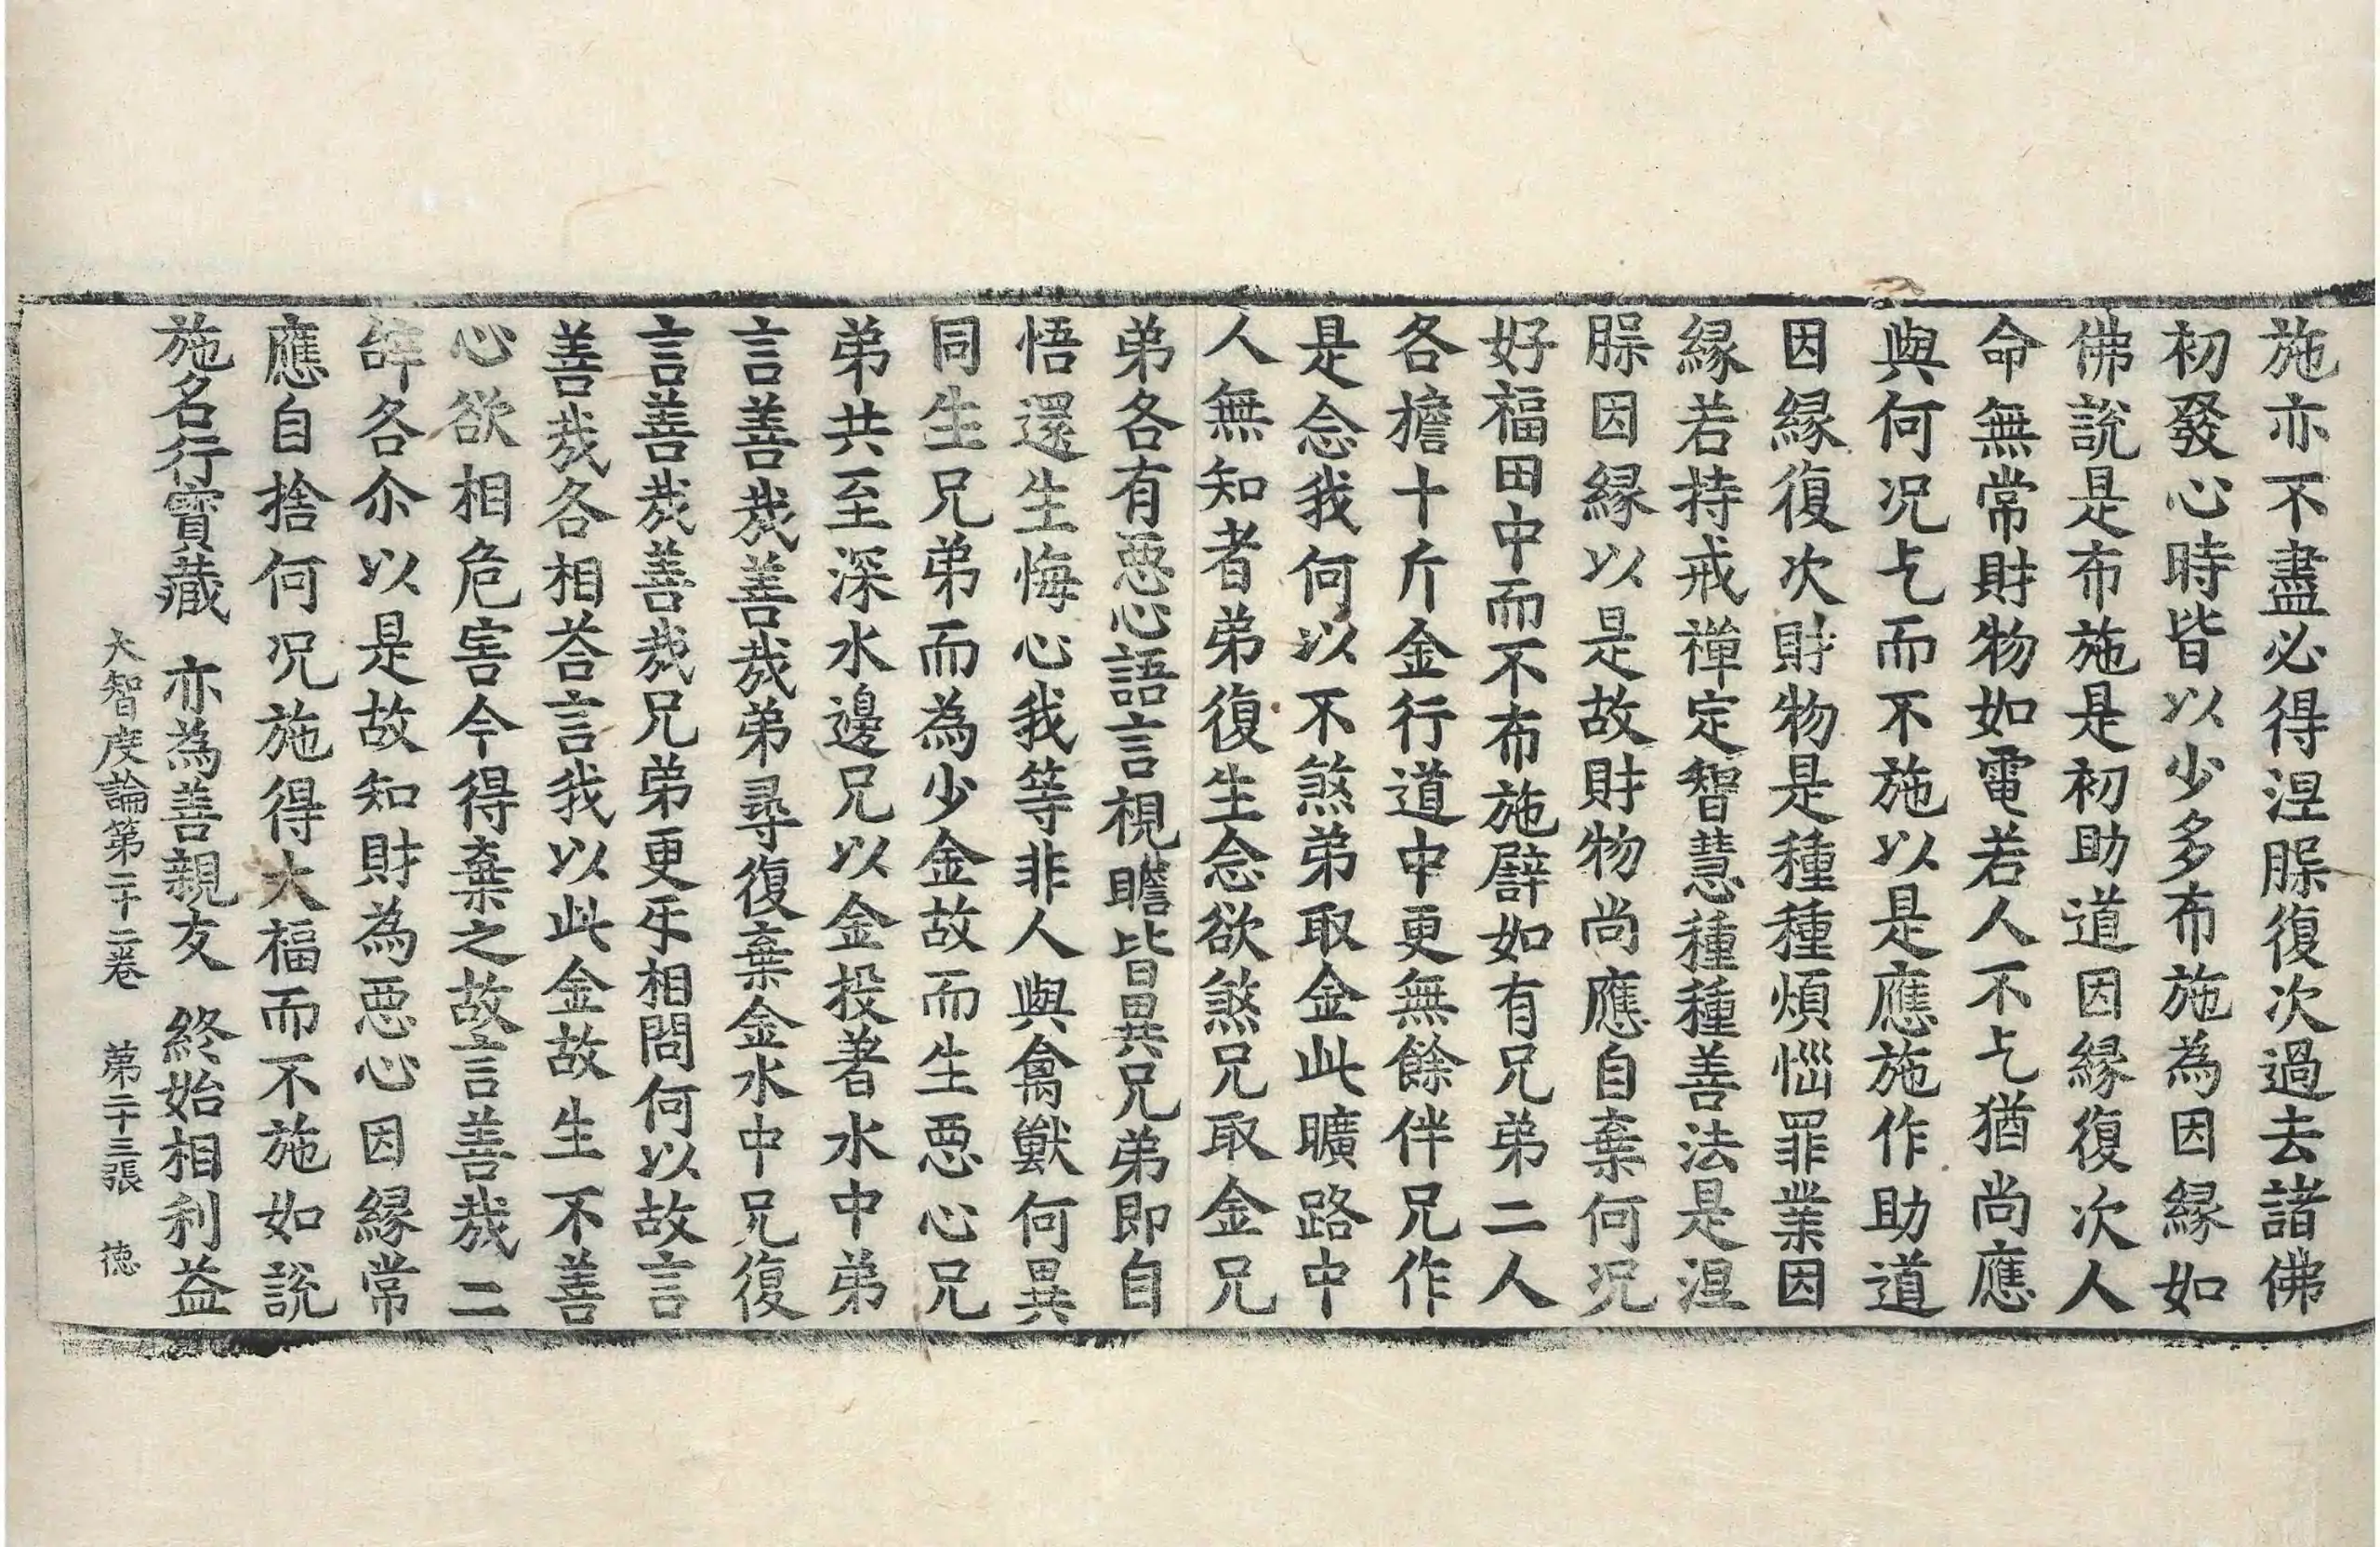 施亦不盡必得涅𣬈復次過去諸佛
初發心時皆以少多布施為因緣如
佛說是布施是初助道因緣復次人
命無常財物如電若人不乞猶尚應
與何况乞而不施以是應施作助道
因緣復次財物是種種煩惱罪業因
緣若持戒禪定智慧種種善法是涅
𣬈因緣以是故財物尚應自棄何况
好福田中而不布施譬如有兄弟二人
各擔十斤金行道中更無餘伴兄作
是念我何以不煞弟取金此曠路中
人無知者弟復生念欲煞兄取金兄
弟各有惡心語言視瞻皆異兄弟即自
悟還生悔心我等非人與禽獸何異
同生兄弟而為少金故而生惡心兄
弟共至深水邊兄以金投著水中弟
言善哉善哉弟尋復棄金水中兄復
言善哉善哉兄弟更互相問何以故言
善哉各相荅言我以此金故生不善
心欲相危害今得棄之故言善哉二
辝各尒以是故知財為惡心因緣常
應自捨何况施得大福而不施如說
施名行寶藏　亦為善親友　終始相利益
大智度論第二十二卷　第二十三張　徳